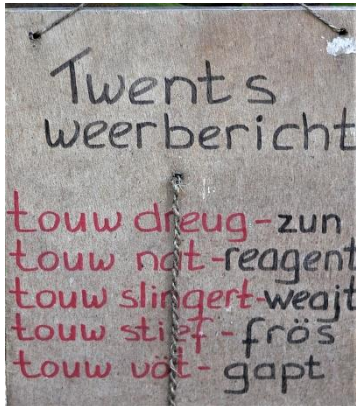 Twents
weerbericht
touw dreug - zun
touw nat - reagent
touw slingert - weajt
touw stief - frös
touw vöt - gapt